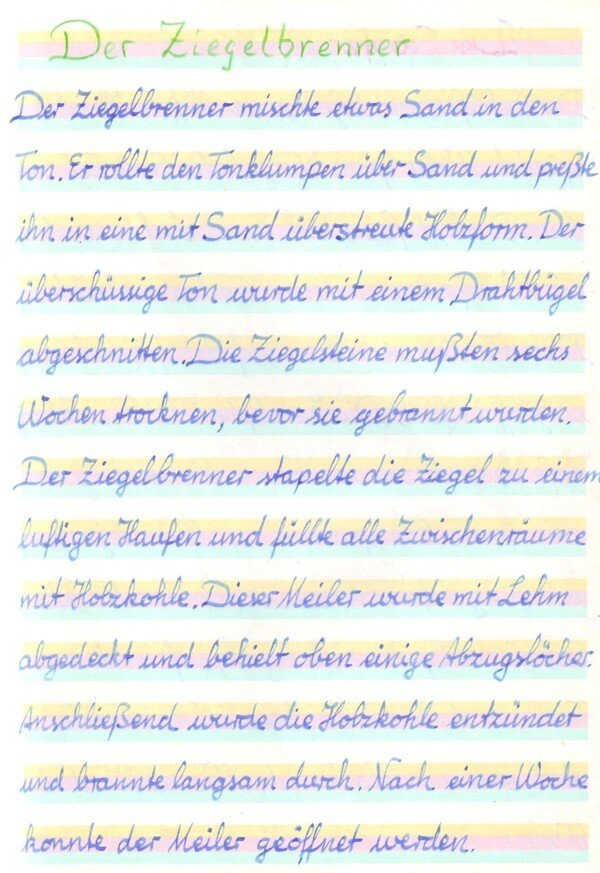 Der Ziegelbrenner
Der Ziegelbrenner mischte etwas Sand in den
Ton. Er rollte den Tonklumpen über Sand und preßte
ihn in eine mit Sand überstreute Holzform. Der
überschüssige Ton wurde mit einem Drahtbügel
abgeschnitten. Die Ziegelsteine mußten sechs
Wochen trocknen, bevor sie gebrannt wurden.
Der Ziegelbrenner stapelte die Ziegel zu einem
luftigen Haufen und füllte alle Zwischenräume
mit Holzkohle. Dieser Meiler wurde mit Lehm
abgedeckt und behielt oben einige Abzugslöcher.
Anschließend wurde die Holzkohle entzündet
und brannte langsam durch. Nach einer Woche
konnte der Meiler geöffnet werden.